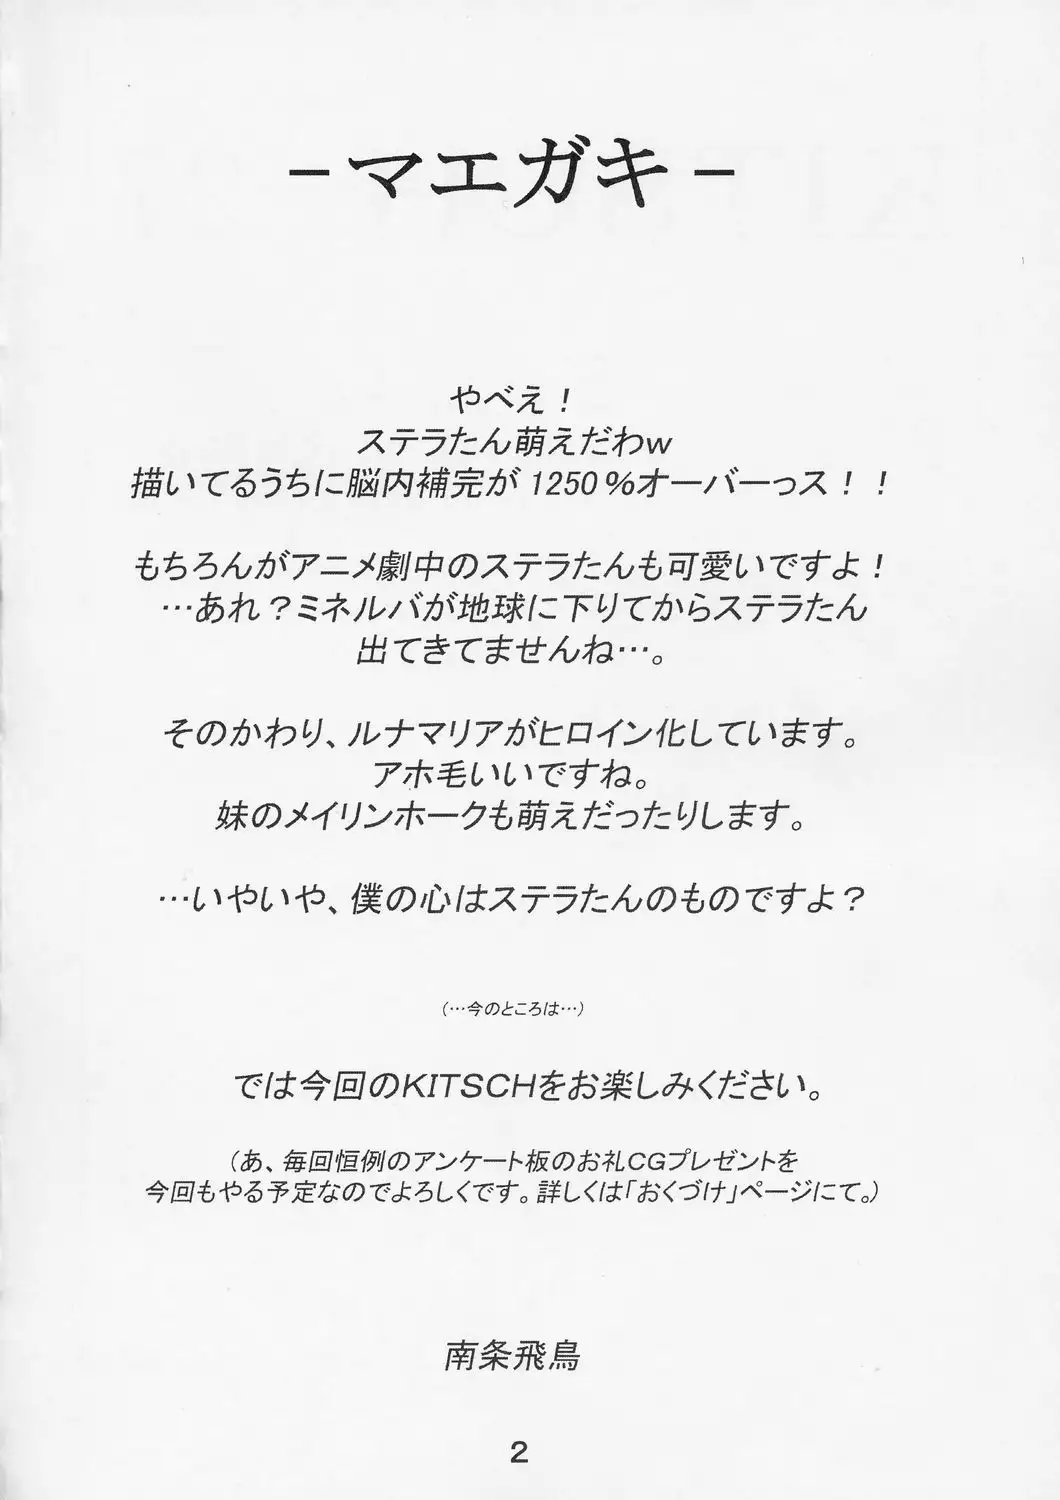 －マエガキ－
やべえ！
ステラたん萌えだわｗ
描いてるうちに脳内補完が1250％オーバーっス！！
もちろんがアニメ劇中のステラたんも可愛いですよ！
…あれ？ミネルバが地球に下りてからステラたん
出てきてませんね…。
そのかわり、ルナマリアがヒロイン化しています。
アホ毛いいですね。
妹のメイリンホークも萌えだったりします。
…いやいや、僕の心はステラたんのものですよ？
（…今のところは…）
では今回のKITSCHをお楽しみください。
（あ、毎回恒例のアンケート板のお礼CGプレゼントを
今回もやる予定なのでよろしくです。詳しくは「おくづけ」ページにて。）
南条飛鳥
2